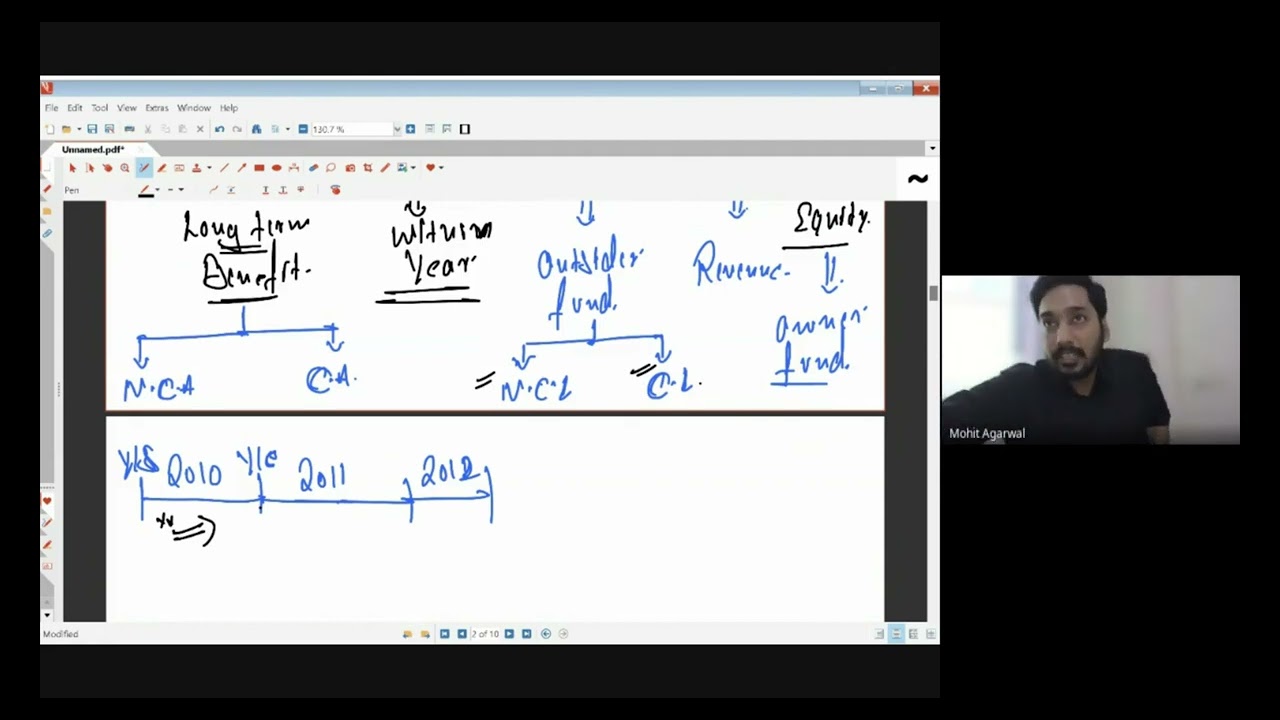 File Edit Tool View Extras Window Help
130.7 %
Unnamed.pdf*
Pen
~
Long term
Benefit.
Within
Year.
Outsider
fund.
Revenue.
Equity.
Owner
fund.
N.C.A
C.A.
N.C.L
C.L.
Y/S 2010 Y/E 2011 2012
Modified
2 of 10
Mohit Agarwal